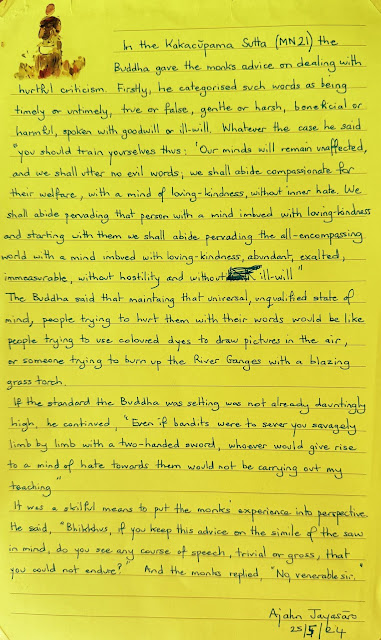 In the Kakacūpama Sutta (MN21) the
Buddha gave the monks advice on dealing with
hurtful criticism. Firstly, he categorised such words as being
timely or untimely, true or false, gentle or harsh, beneficial or
harmful, spoken with goodwill or ill-will. Whatever the case he said
"you should train yourselves thus: 'Our minds will remain unaffected,
and we shall utter no evil words; we shall abide compassionate for
their welfare, with a mind of loving-kindness, without inner hate. We
shall abide pervading that person with a mind imbued with loving-kindness
and starting with them we shall abide pervading the all-encompassing
world with a mind imbued with loving-kindness, abundant, exalted,
immeasurable, without hostility and without ill-will"
The Buddha said that maintaing that universal, unqualified state of
mind, people trying to hurt them with their words would be like
people trying to use coloured dyes to draw pictures in the air,
or someone trying to burn up the River Ganges with a blazing
grass torch.
If the standard the Buddha was setting was not already dauntingly
high, he continued, "Even if bandits were to sever you savagely
limb by limb with a two-handed sword, whoever would give rise
to a mind of hate towards them would not be carrying out my
teaching"
It was a skilful means to put the monks' experience into perspective.
He said, "Bhikkhus, if you keep this advice on the simile of the saw
in mind, do you see any course of speech, trivial or gross, that
you could not endure?" And the monks replied "No, venerable sir."
Ajahn Jayasāro
25/5/24